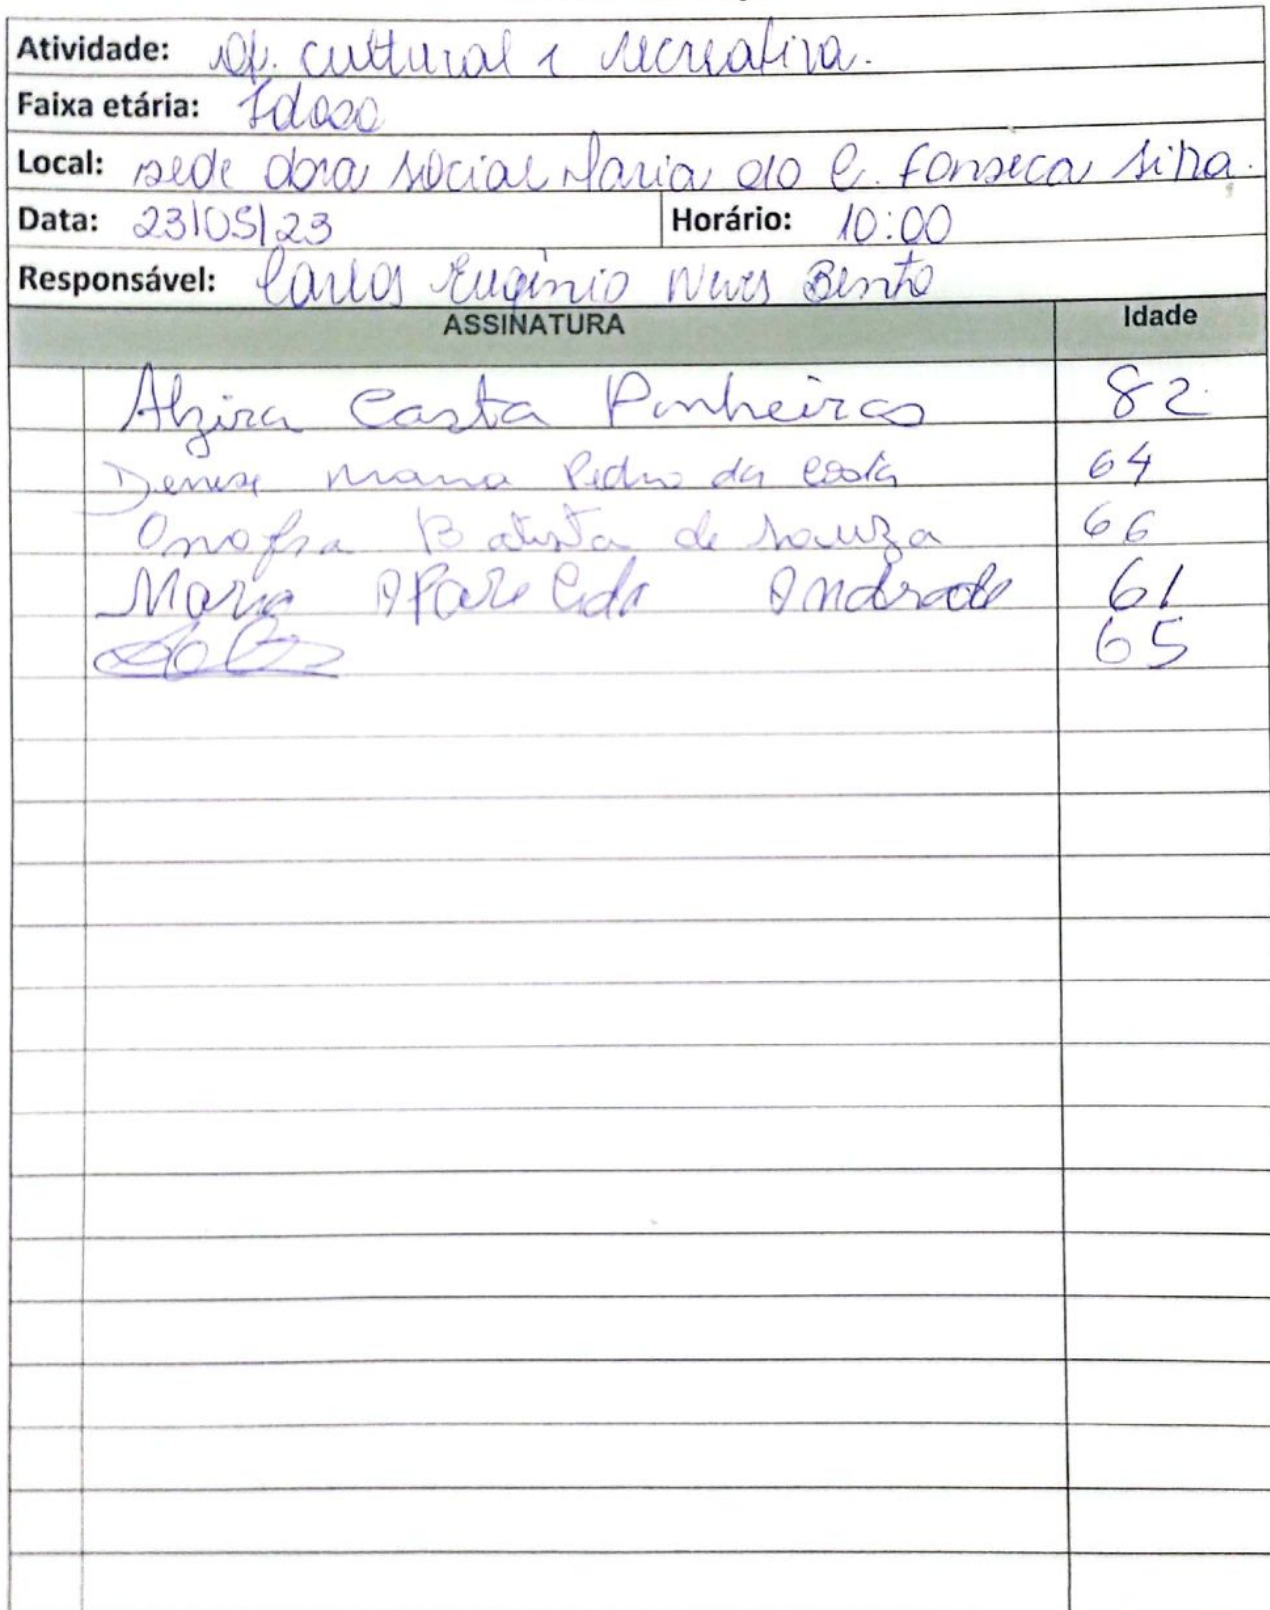 Atividade: Of. cultural e recreativa.
Faixa etária: Idoso
Local: sede obra social Maria do C. Fonseca Silva.
Data: 23/05/23 Horário: 10:00
Responsável: Carlos Eugênio Neves Bento
ASSINATURA Idade
Alzira Costa Pinheiros 82
Denise Maria Pedro da Costa 64
Onofra Batista de Souza 66
Maria Aparecida Andrade 61
65